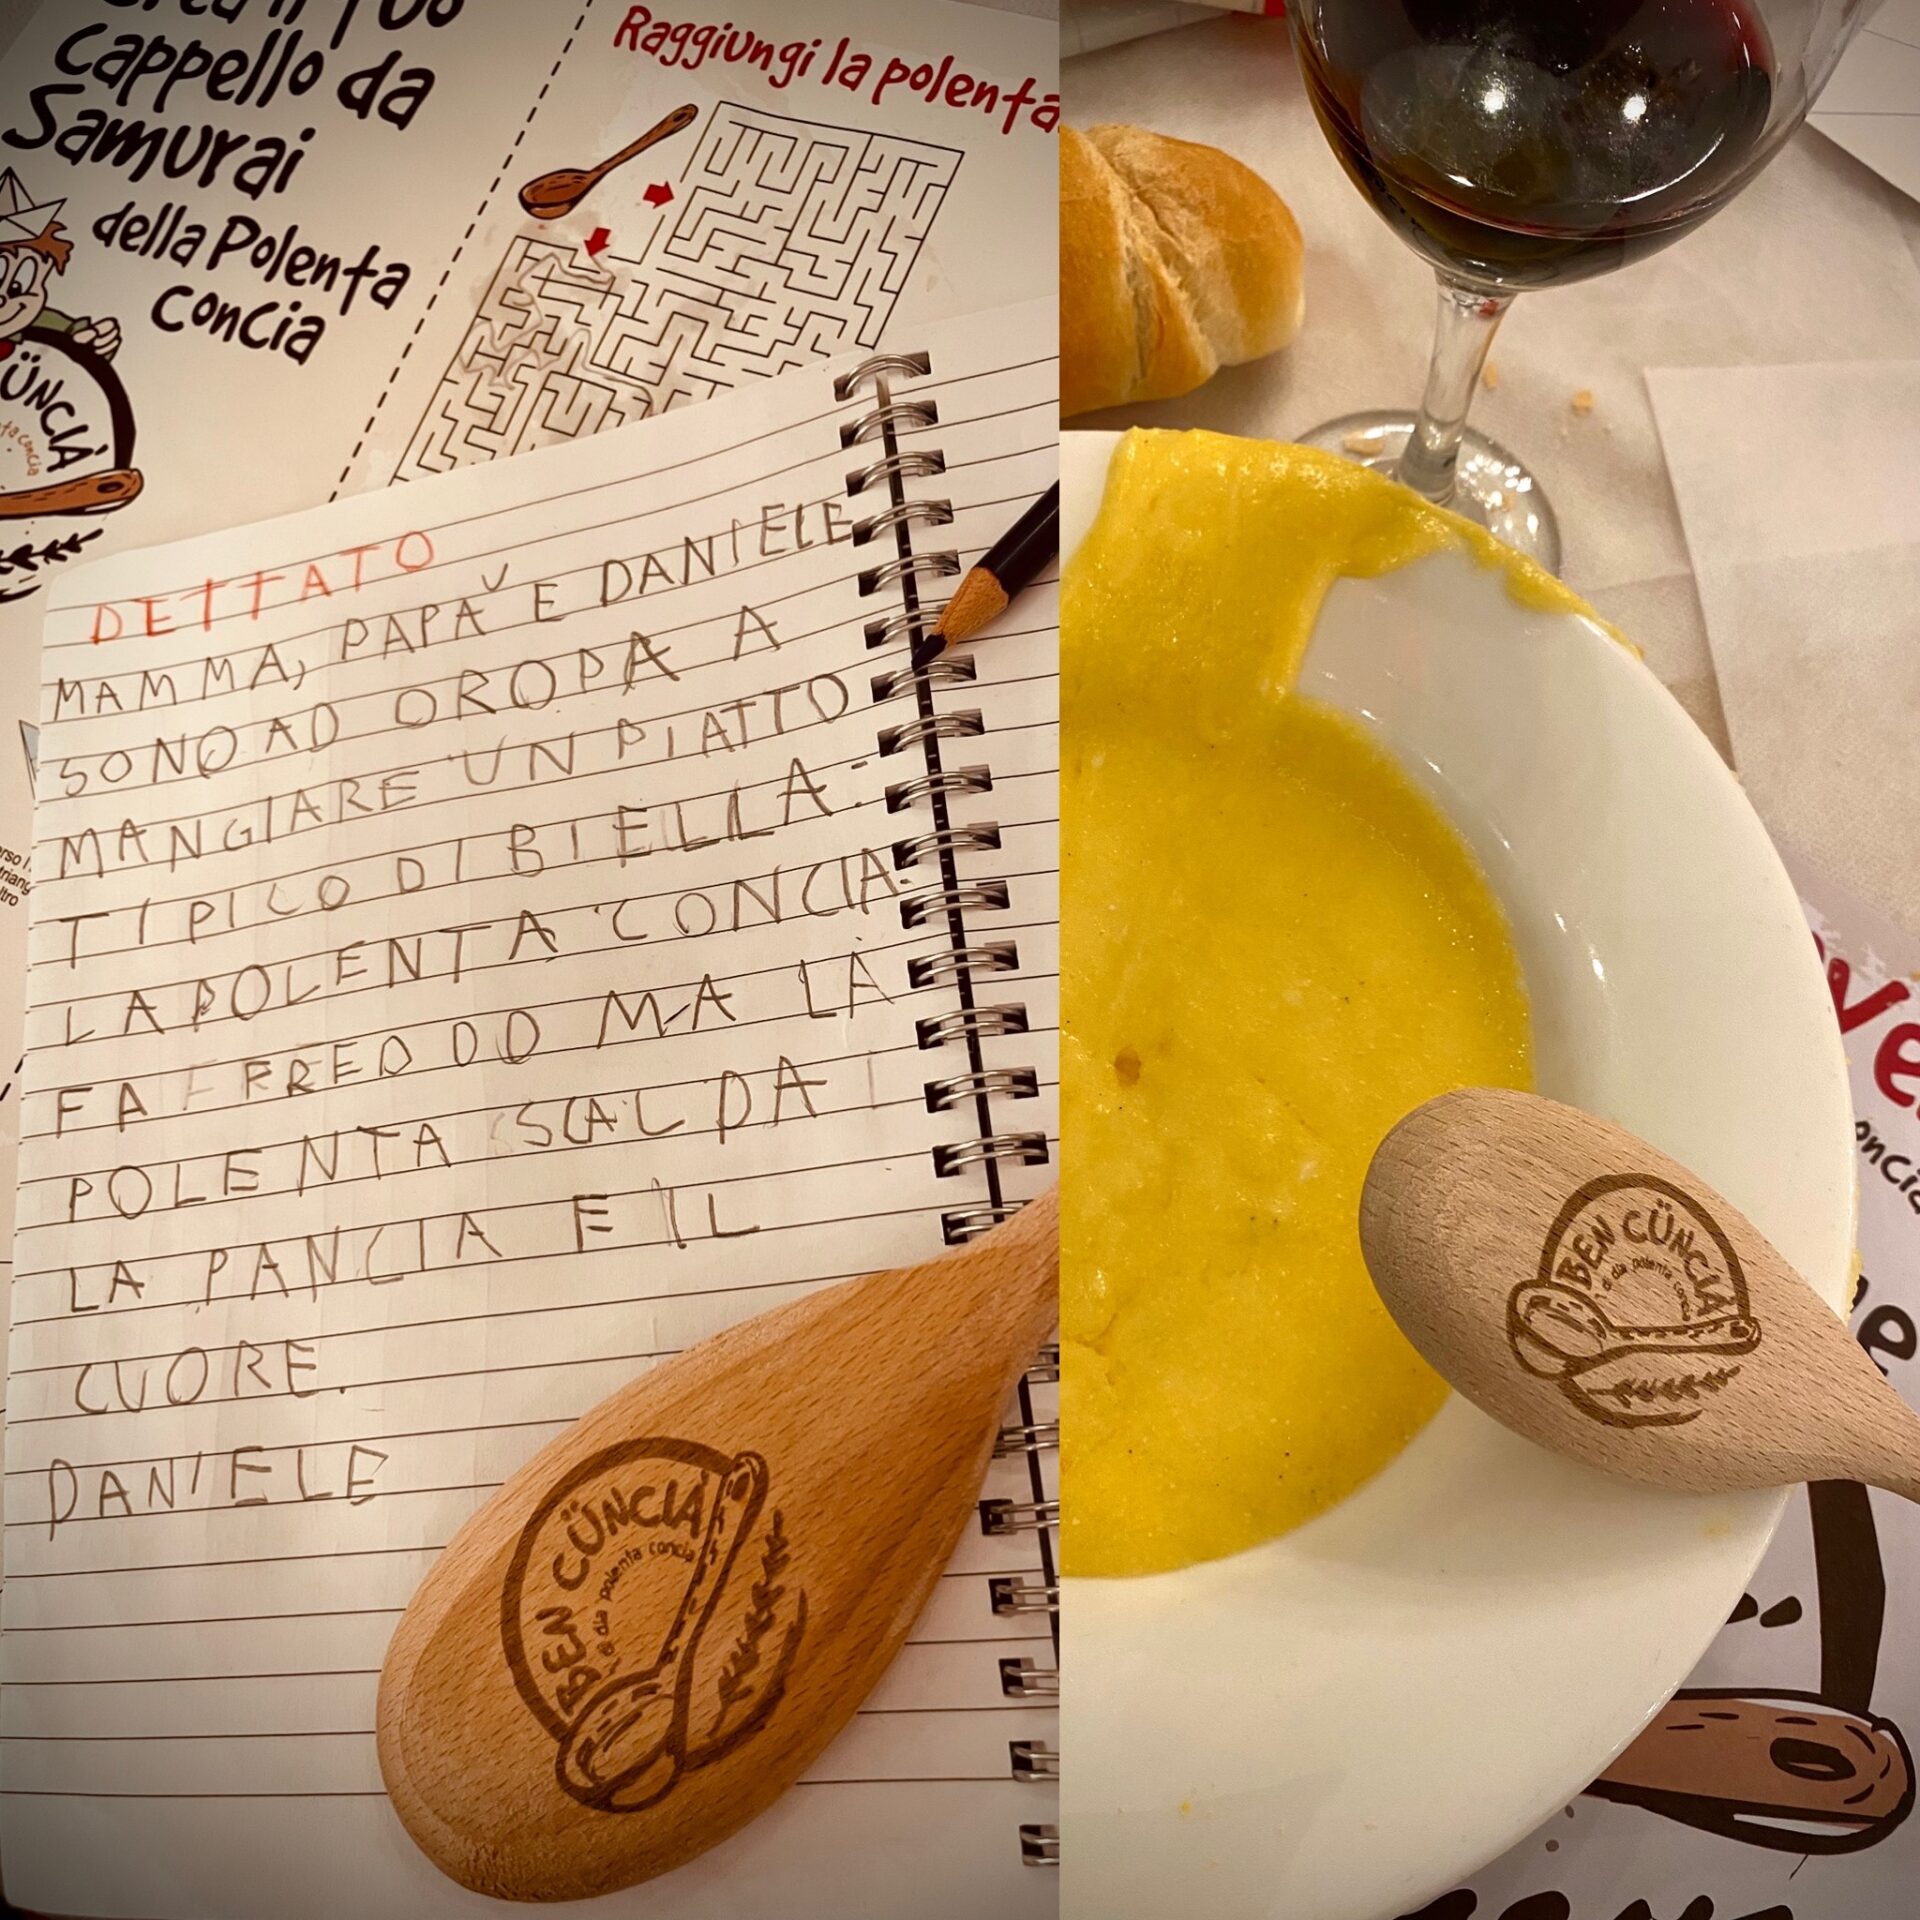 Cappello da
Samurai
della Polenta
concia
ÜNCIÀ
Raggiungi la polenta
DETTATO
MAMMA, PAPÀ E DANIELE
SONO AD OROPA A
MANGIARE UN PIATTO
TIPICO DI BIELLA:
LA POLENTA CONCIA.
FA FREDDO MA LA
POLENTA SCALDA
LA PANCIA E IL
CUORE.
DANIELE
BEN CÜNCIÀ
di dia polenta concia
BEN CÜNCIÀ
di dia polenta concia
oncia